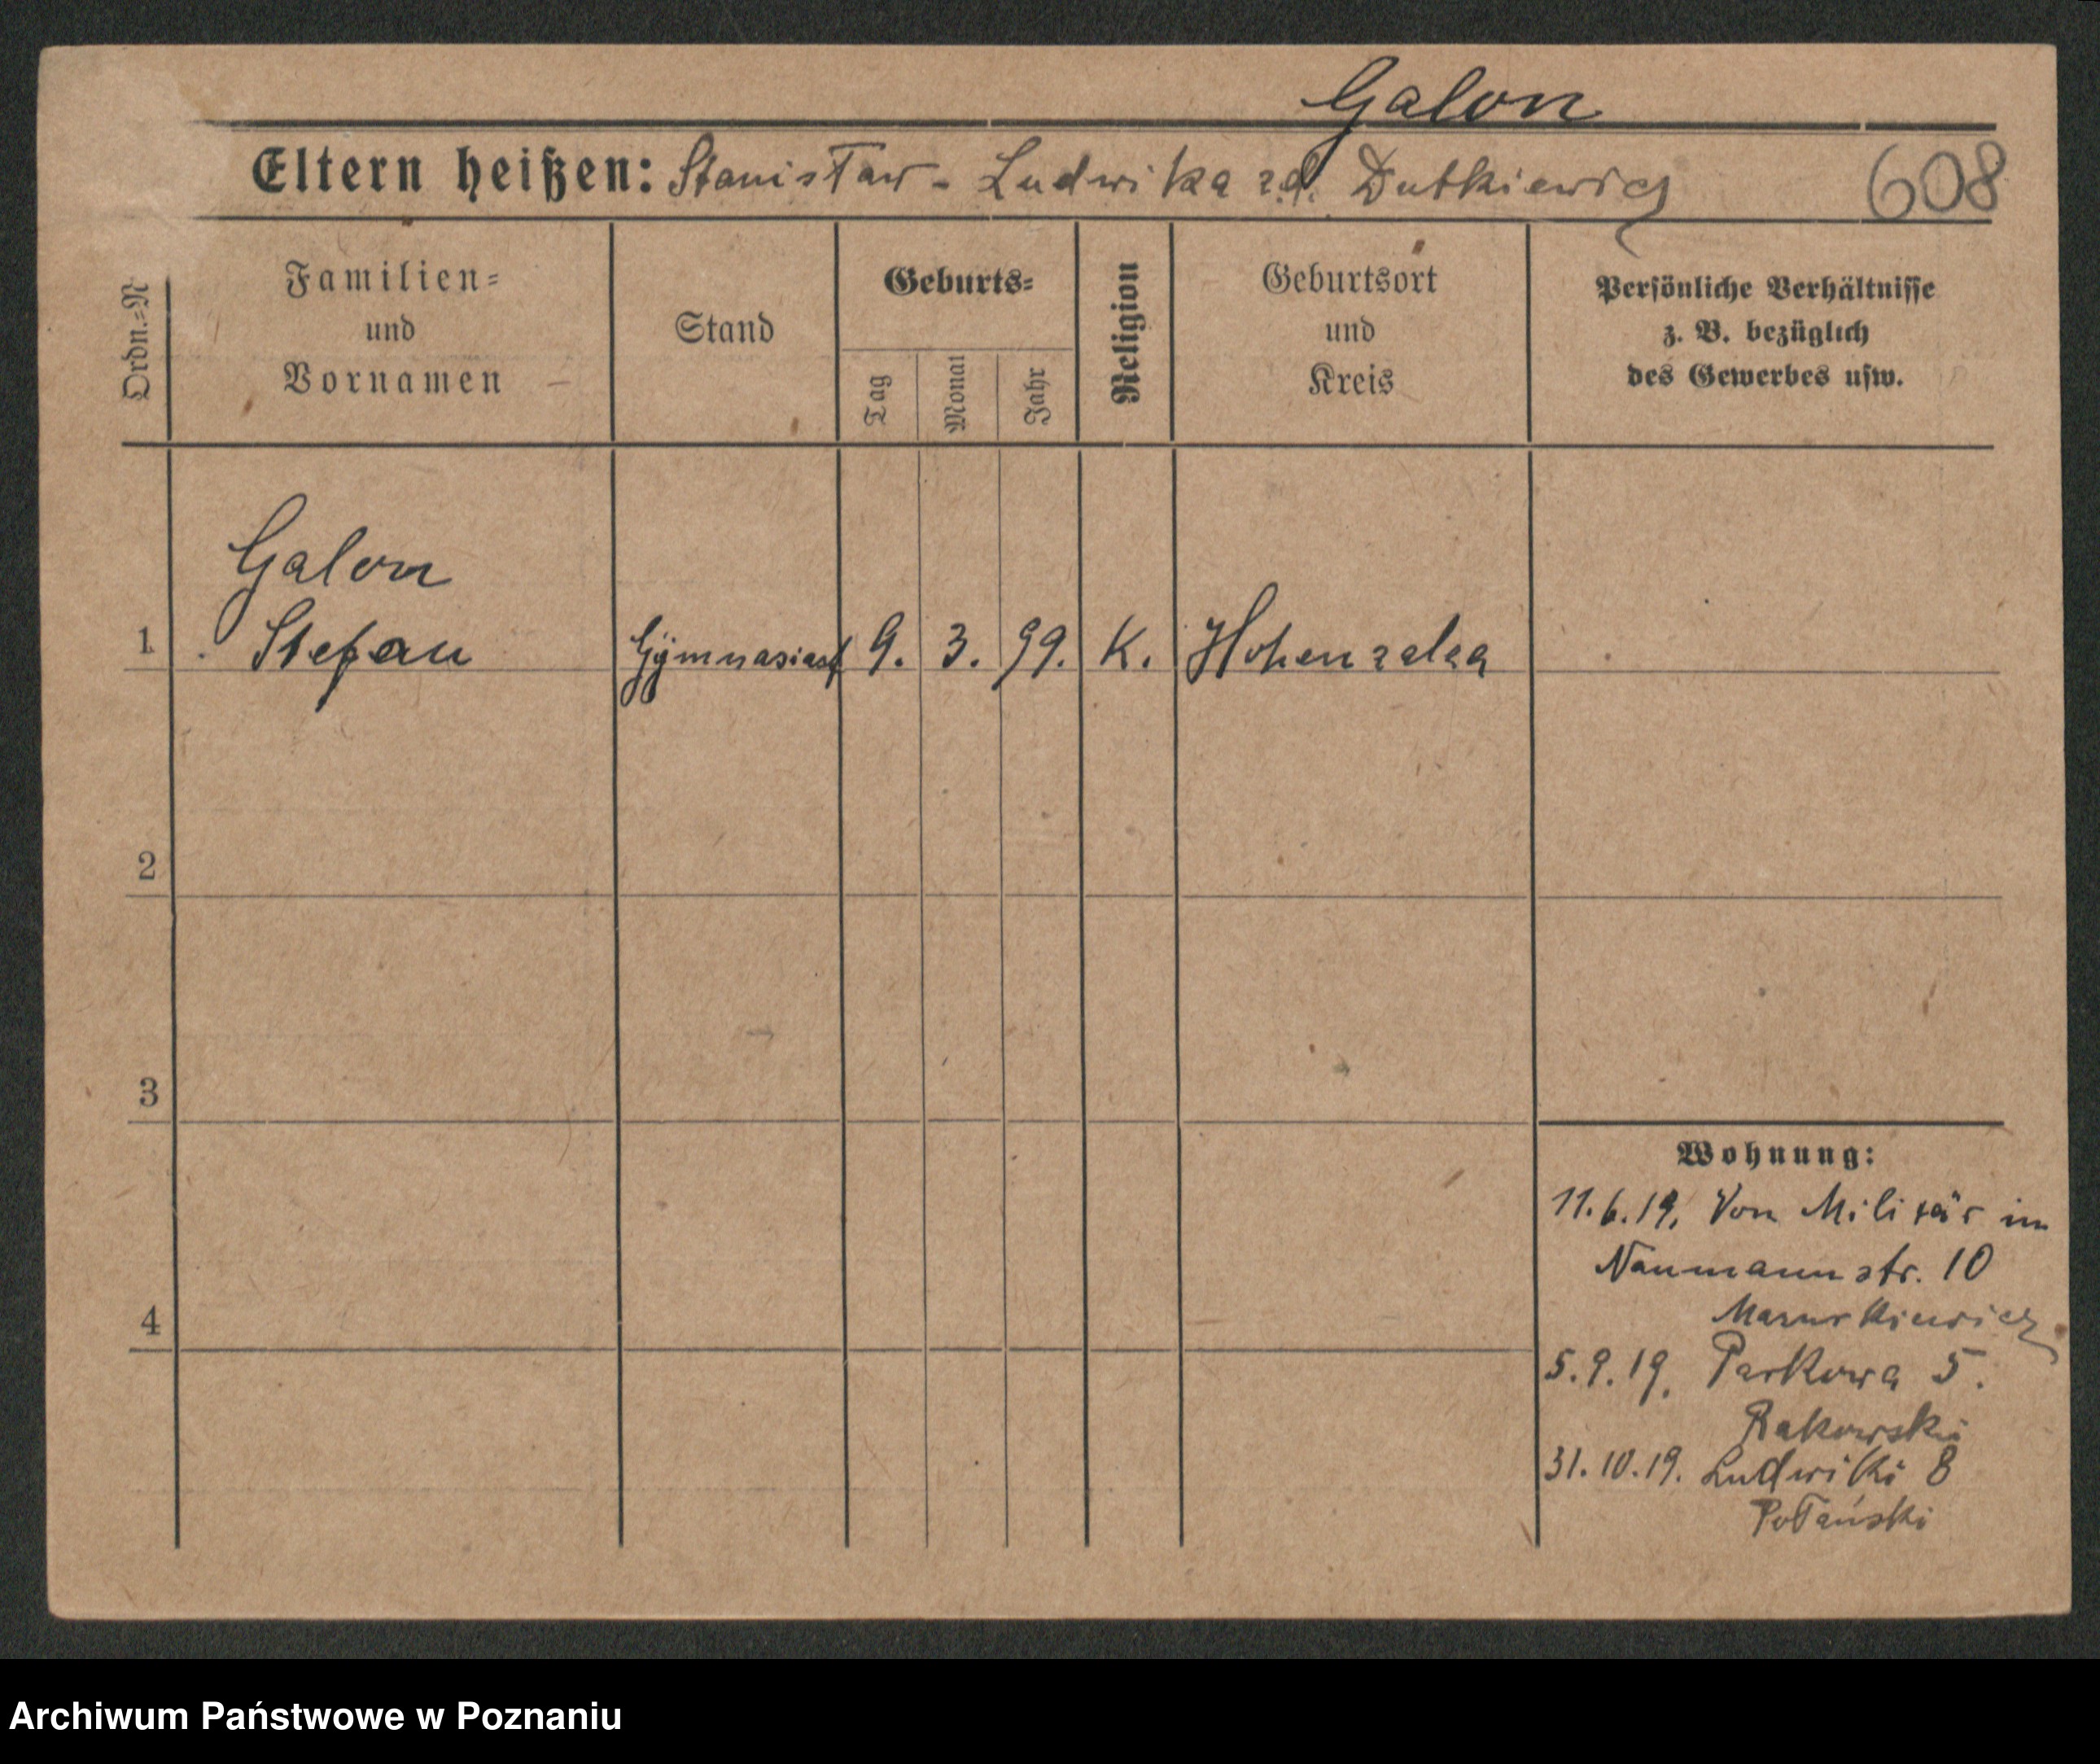 Galon
Eltern heißen: Stanisław - Ludwika z d. Dutkiewicz
608
Ordn.=N
Familien=
und
Vornamen
Stand
Geburts=
Tag
Monat
Jahr
Religion
Geburtsort
und
Kreis
Persönliche Verhältnisse
z. B. bezüglich
des Gewerbes usw.
Galon
1 Stefan Gymnasiast 9. 3. 99. K. Hohensalza
2
3
4
Wohnung:
11.6.19. Von Militär in
Naumannstr. 10
5.9.19. Parkowa 5.
Rakowski
31.10.19. Ludwiki 8
Połański
Archiwum Państwowe w Poznaniu